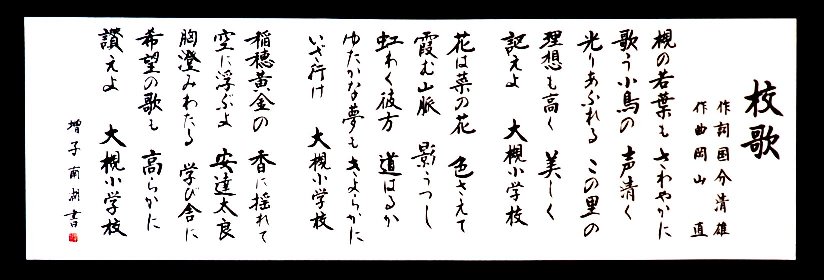 校歌
作詞 国分清雄
作曲 岡山 直
槻の若葉も さわやかに
歌う小鳥の 声清く
光りあふれる この里の
理想も高く 美しく
記えよ 大槻小学校
花は菜の花 色さえて
霞む山脈 影うつし
虹わく彼方 道はるか
ゆたかな夢も きよらかに
いざ行け 大槻小学校
稲穂黄金の 香に揺れて
空に浮ぶよ 安達太良
胸澄みわたる 学び舎に
希望の歌も 高らかに
讃えよ 大槻小学校
増子 南湖書